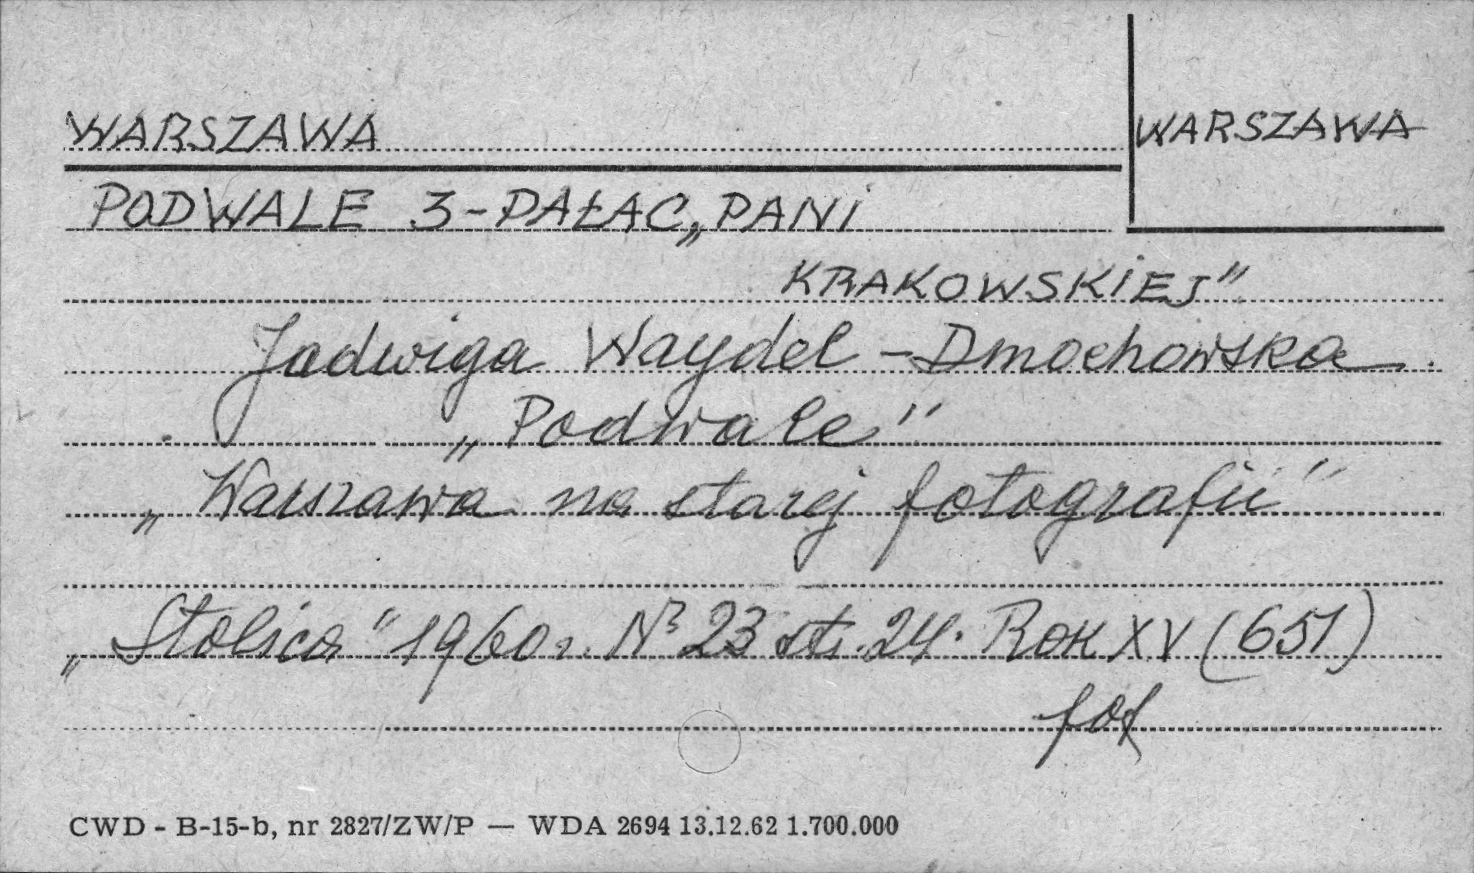 WARSZAWA
WARSZAWA
PODWALE 3-PAŁAC „PANI
KRAKOWSKIEJ"
Jadwiga Waydel-Dmochowska.
„Podwale"
„Warszawa na starej fotografii"
„Stolica" 1960 r. Nr 23 str. 24. Rok XV (651)
fot
CWD - B-15-b, nr 2827/ZW/P — WDA 2694 13.12.62 1.700.000